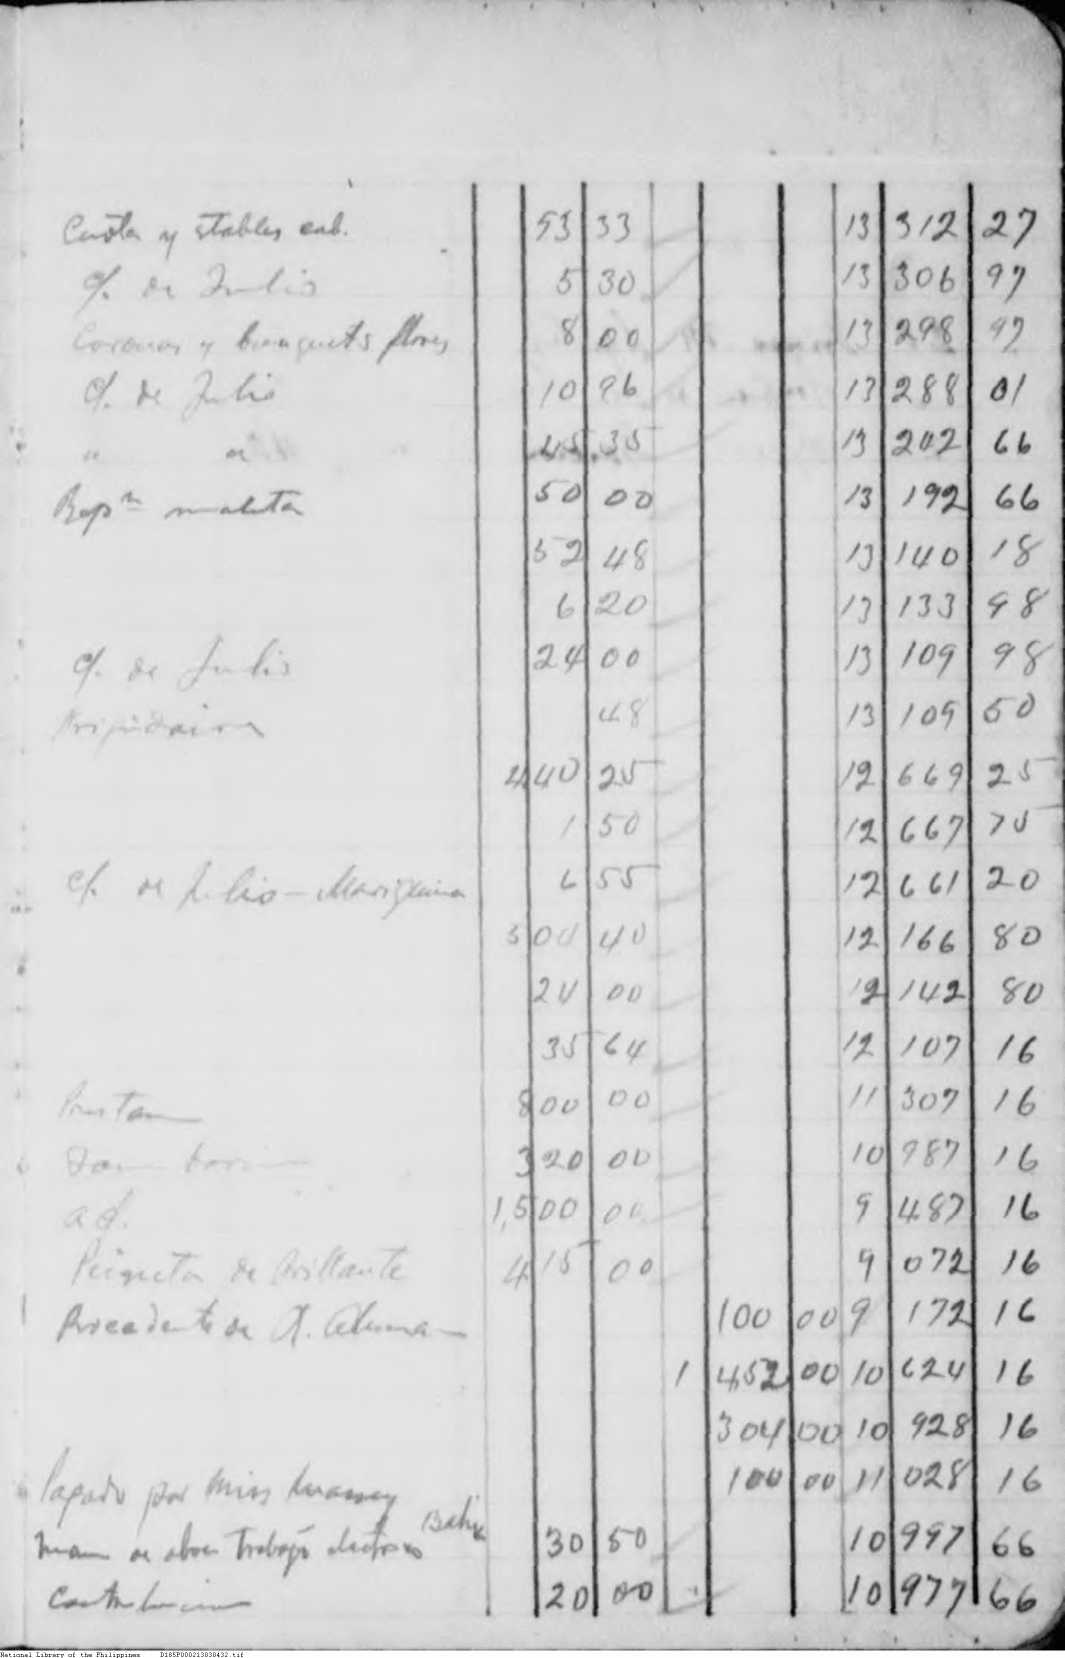 Cuota y establos cab. 53 33 13 312 27
c/. de Julio 5 30 13 306 97
Coronas y bouquets flores 8 00 13 298 97
c/. de Julio 10 96 13 288 01
" " 45 35 13 242 66
Repn maleta 50 00 13 192 66
52 48 13 140 18
6 20 13 133 98
c/. de Julio 24 00 13 109 98
48 13 109 50
440 25 12 669 25
1 50 12 667 75
c/. de Julio - Mariquina 6 55 12 661 20
40 12 166 80
24 00 12 142 80
35 64 12 107 16
800 00 11 307 16
320 00 10 987 16
1,500 00 9 487 16
de Brillante 415 00 9 072 16
Procedente de A. 100 00 9 172 16
1 452 00 10 624 16
304 00 10 928 16
Pagado por Miss 100 00 11 028 16
de obra trabajo 30 50 10 997 66
20 00 10 977 66
National Library of the Philippines D185P000213838432.tif